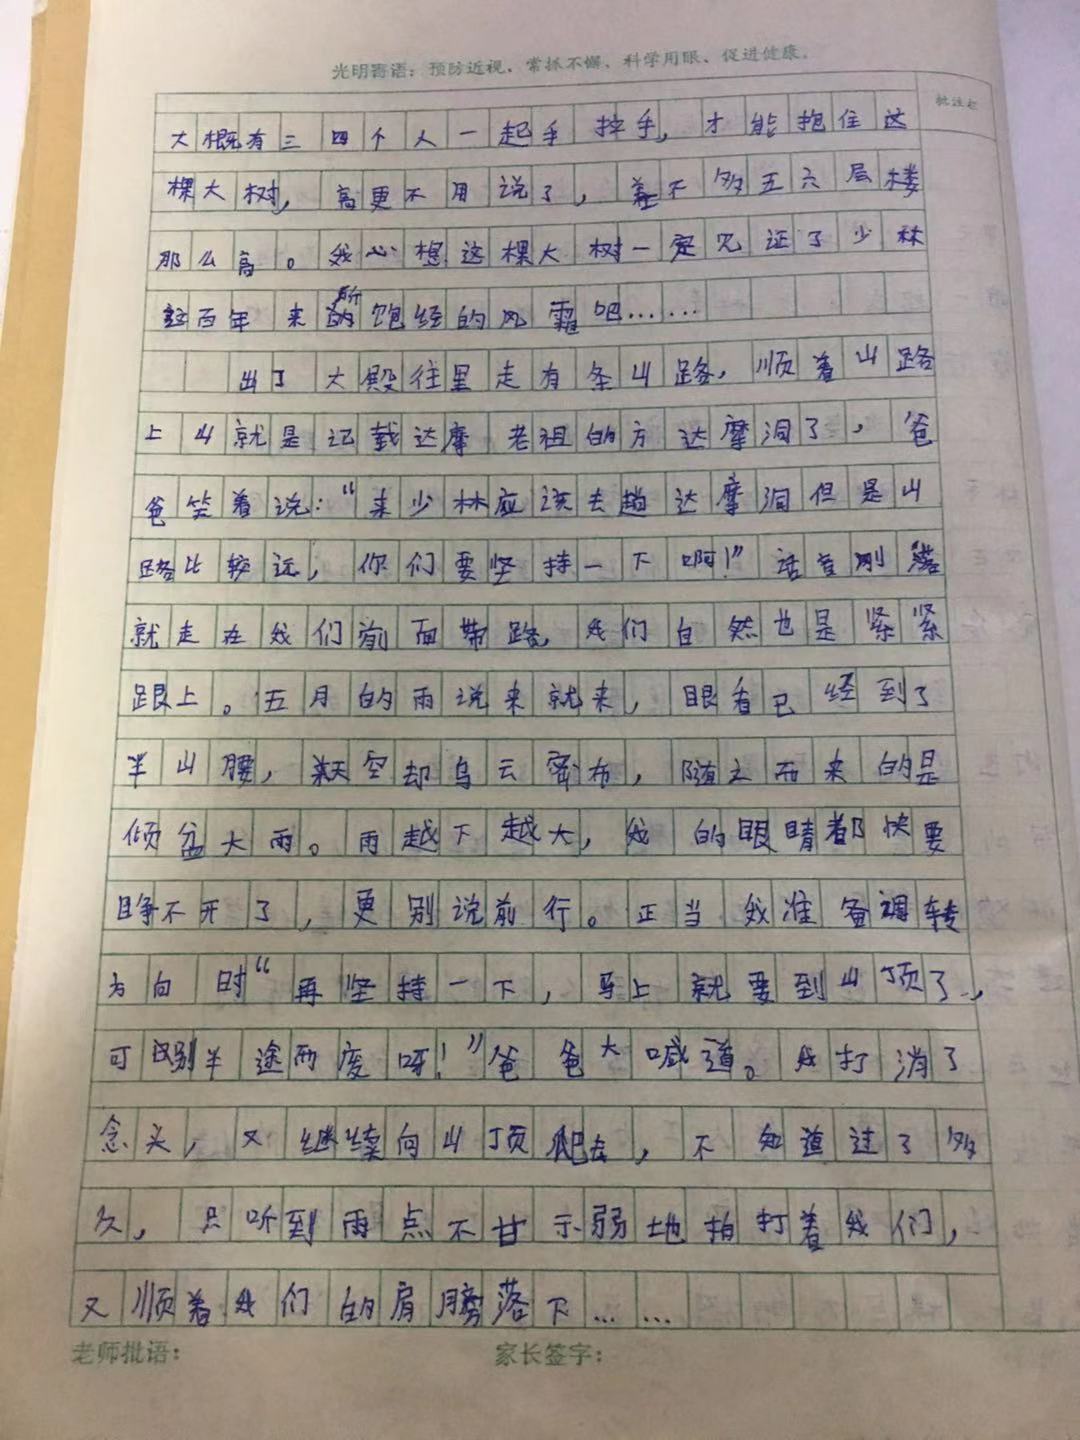 光明寄语：预防近视、常抓不懈、科学用眼、促进健康。
批注栏
大概有三四个人一起手拌手，才能抱住这
棵大树，高更不用说了，差不多五六层楼
那么高。我心想这棵大树一定见证了少林
这百年来所的饱经的风霜吧……
出了大殿往里走有条山路，顺着山路
上山就是记载达摩老祖的方达摩洞了，爸
爸笑着说：“来少林应该去趟达摩洞但是山
路比较远，你们要坚持一下啊！”话音刚落
就走在我们前面带路，我们自然也是紧紧
跟上。五月的雨说来就来，眼看已经到了
半山腰，天空却乌云密布，随之而来的是
倾盆大雨。雨越下越大，我的眼睛都快要
睁不开了，更别说前行。正当我准备调转
方向时“再坚持一下，马上就要到山顶了，
可别半途而废呀！”爸爸大喊道。我打消了
念头，又继续向山顶爬去，不知道过了多
久，只听到雨点不甘示弱地拍打着我们，
又顺着我们的肩膀落下……
老师批语：
家长签字：